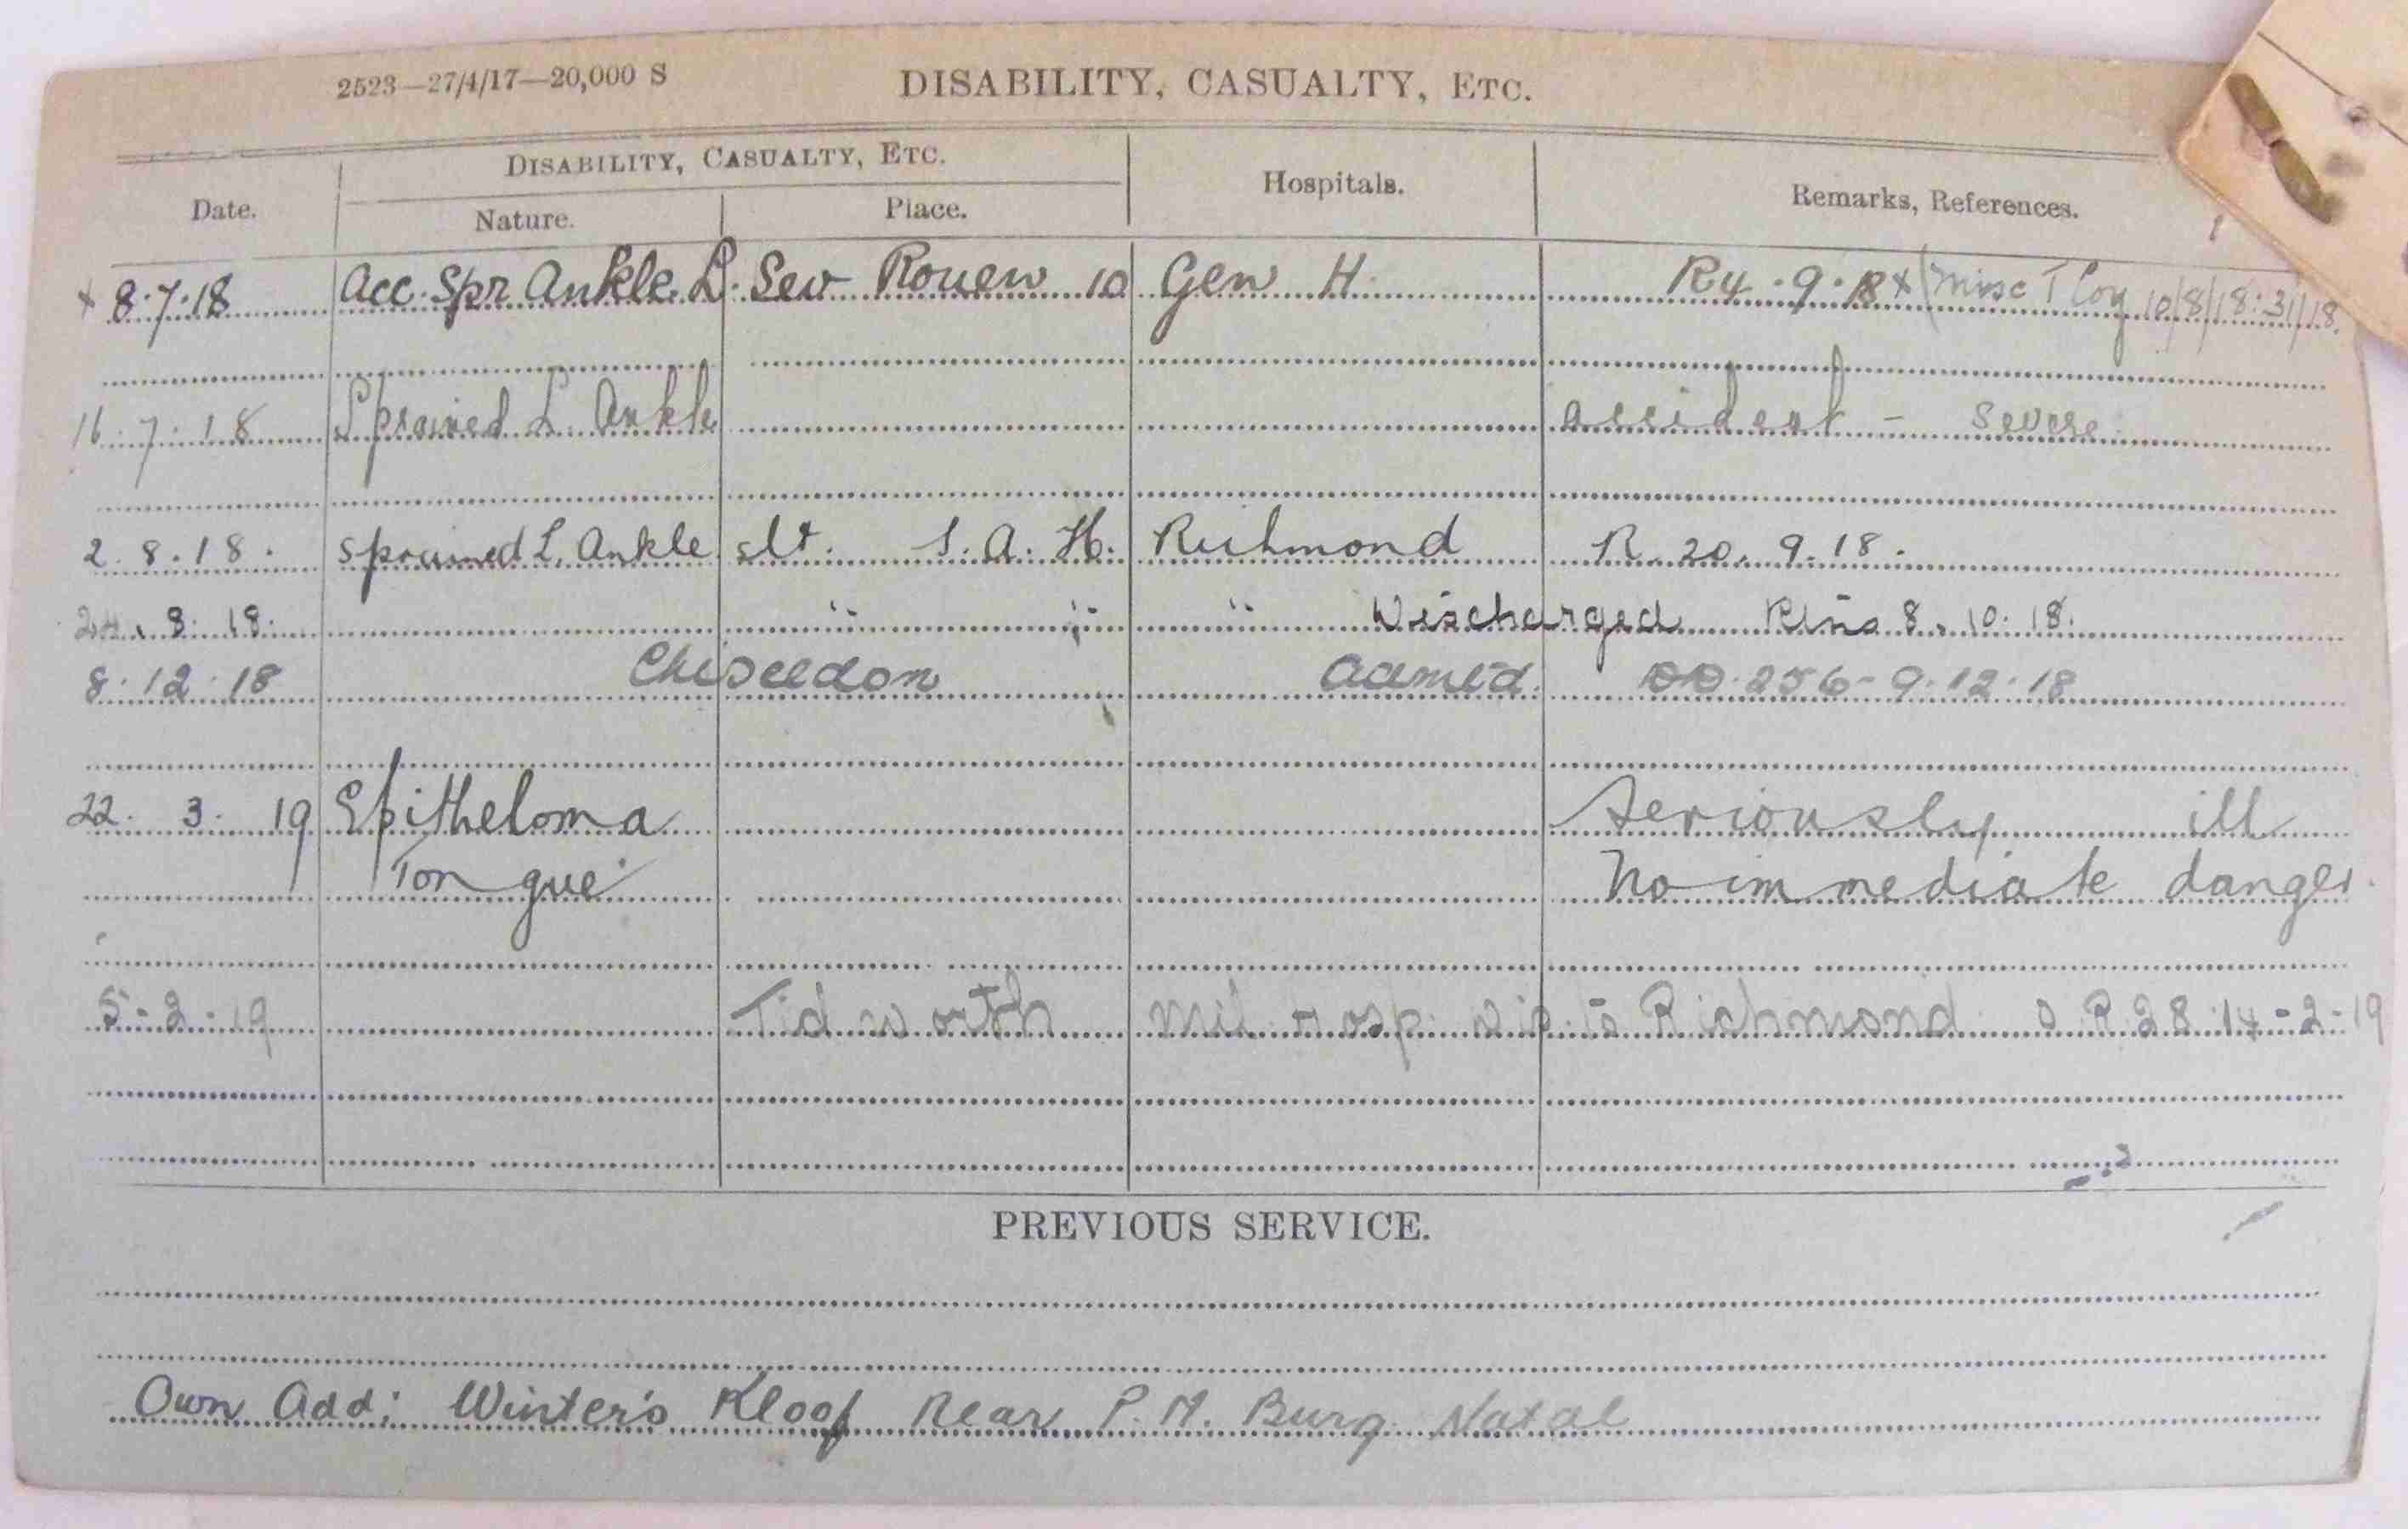 2523—27/4/17—20,000 S
DISABILITY, CASUALTY, ETC.
DISABILITY, CASUALTY, ETC.
Date. Nature. Place. Hospitals. Remarks, References.
x 8.7.18 Acc. Spr Ankle L. Sev Rouen 10 Gen H. R4.9.18 x (Misc T Coy 10/8/18:31/18.
16.7.18 Sprained L. Ankle accident - Severe.
2.8.18. Sprained L. Ankle slt. S.A.H. Richmond R. 20.9.18.
24.8.18. " " " Discharged 8.10.18.
8.12.18 Chiseldon admtd. DO.256-9.12.18
22.3.19 Epitheloma Seriously ill
Tongue No immediate danger.
5-2-19 Tidworth Mil Hosp. to Richmond 28.14-2-19
PREVIOUS SERVICE.
Own Add: Winter's Kloof Near P.M. Burg. Natal